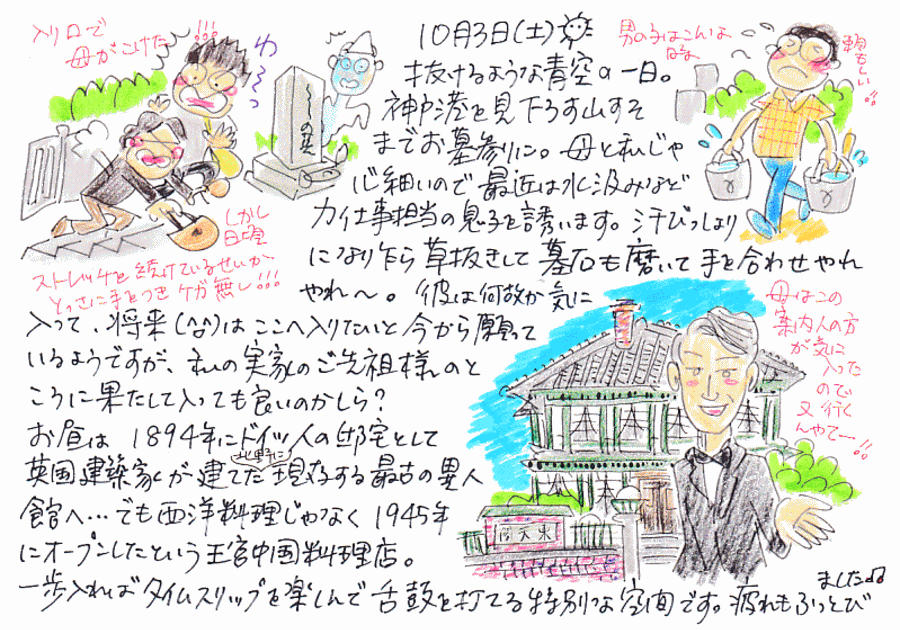 入り口で
母がこけた!!!
わ～～っ
～～の墓
しかし
日頃
ストレッチを続けているせいか
とっさに手をつきケガ無し!!!
10月3日(土)
抜けるような青空の一日。
神戸港を見下ろす山すそ
までお墓参りに。母と私じゃ
心細いので最近は水汲みなど
力仕事担当の息子を誘います。汗びっしょり
になり乍ら草抜きして墓石も磨いて手を合わせやれ
やれ～。彼は何故か気に
入って、将来(な)はここへ入りたいと今から願って
いるようですが、私の実家のご先祖様のと
ころに果たして入っても良いのかしら?
お昼は1894年にドイツ人の邸宅として
英国建築家が北野に建てた現存する最古の異人
館へ…でも西洋料理じゃなく1945年
にオープンしたという王宮中国料理店。
一歩入ればタイムスリップを楽しんで舌鼓を打てる特別な空間です。疲れもふっとび
ました♪♪
男の子はこんな
時
頼もしい!!
母はこの
案内人の方
が気に
入った
ので
又行く
んやて～!!
東天閣